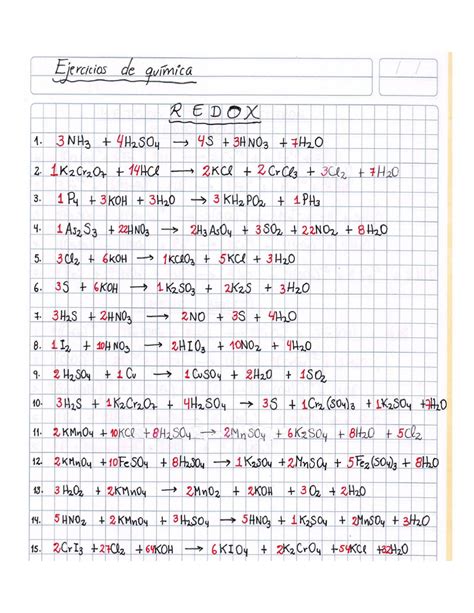 Ejercicios de química
/ /
REDOX
1. 3NH3 + 4H2SO4 → 4S + 3HNO3 + 7H2O
2. 1K2Cr2O7 + 14HCl → 2KCl + 2CrCl3 + 3Cl2 + 7H2O
3. 1P4 + 3KOH + 3H2O → 3KH2PO2 + 1PH3
4. 1As2S3 + 22HNO3 → 2H3AsO4 + 3SO2 + 22NO2 + 8H2O
5. 3Cl2 + 6KOH → 1KClO3 + 5KCl + 3H2O
6. 3S + 6KOH → 1K2SO3 + 2K2S + 3H2O
7. 3H2S + 2HNO3 → 2NO + 3S + 4H2O
8. 1I2 + 10HNO3 → 2HIO3 + 10NO2 + 4H2O
9. 2H2SO4 + 1Cu → 1CuSO4 + 2H2O + 1SO2
10. 3H2S + 1K2Cr2O7 + 4H2SO4 → 3S + 1Cr2(SO4)3 + 1K2SO4 + 7H2O
11. 2KMnO4 + 10KCl + 8H2SO4 → 2MnSO4 + 6K2SO4 + 8H2O + 5Cl2
12. 2KMnO4 + 10FeSO4 + 8H2SO4 → 1K2SO4 + 2MnSO4 + 5Fe2(SO4)3 + 8H2O
13. 3H2O2 + 2KMnO4 → 2MnO2 + 2KOH + 3O2 + 2H2O
14. 5HNO2 + 2KMnO4 + 3H2SO4 → 5HNO3 + 1K2SO4 + 2MnSO4 + 3H2O
15. 2CrI3 + 27Cl2 + 64KOH → 6KIO4 + 2K2CrO4 + 54KCl + 32H2O